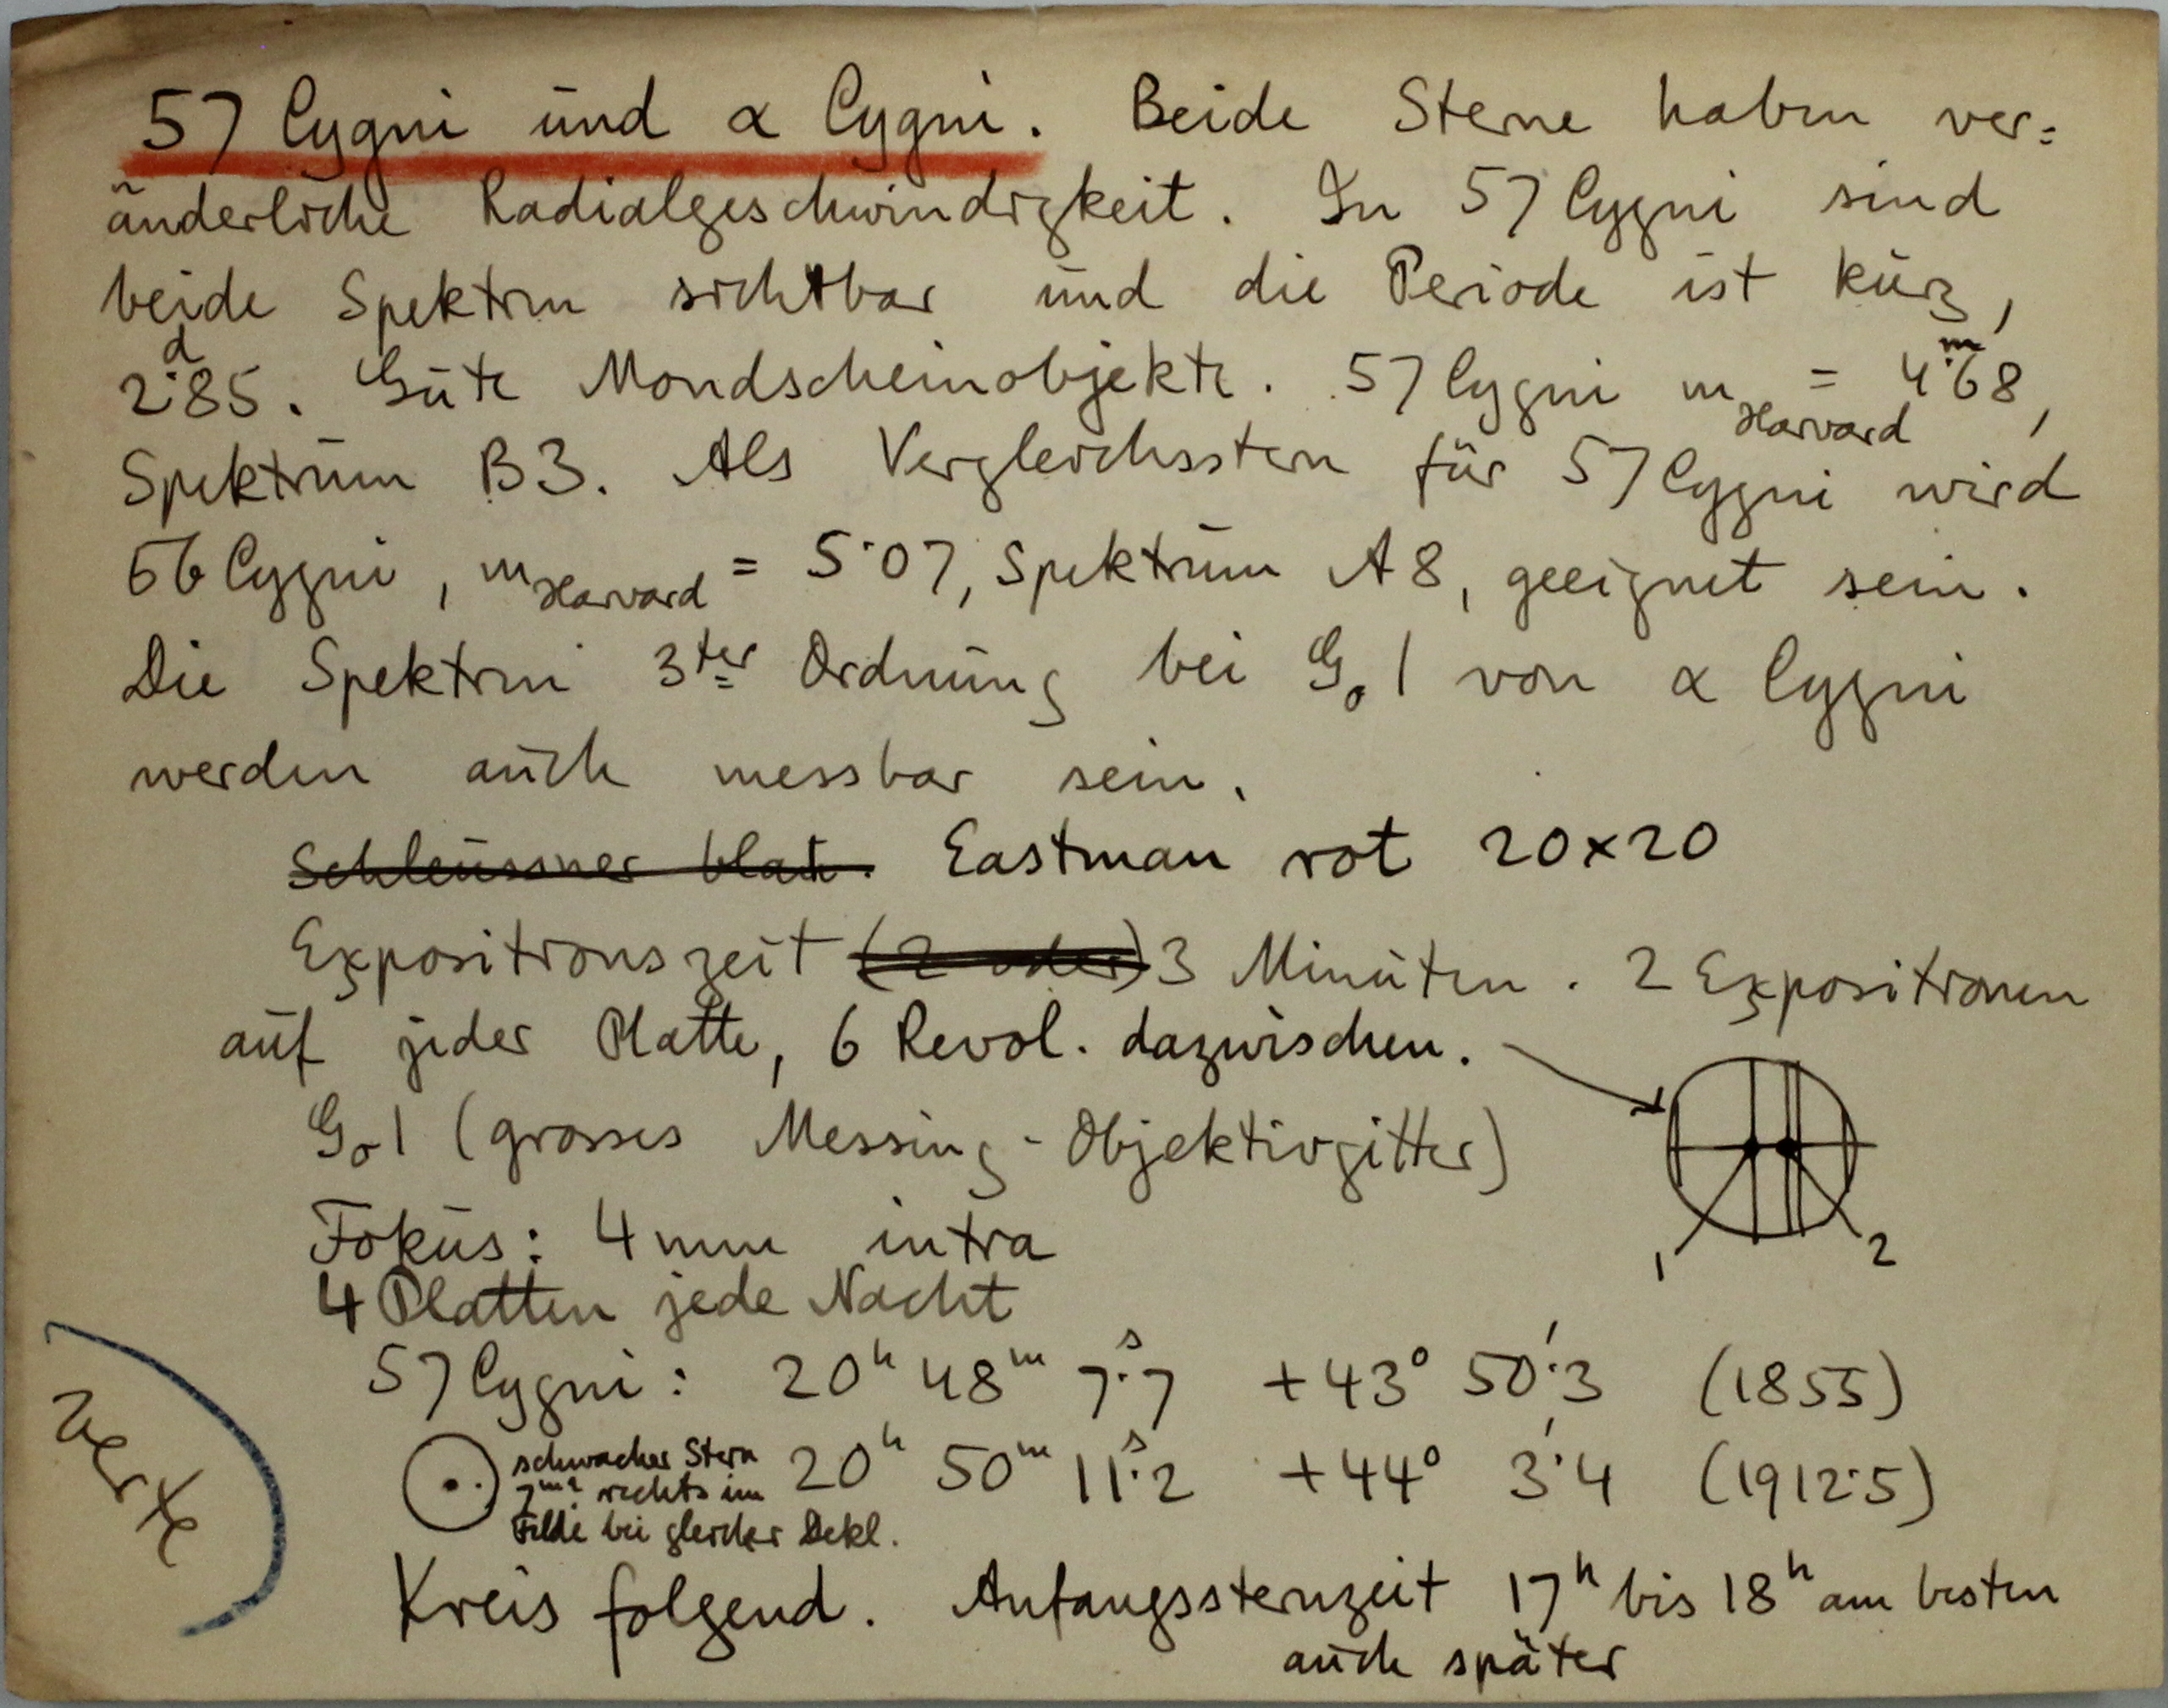 57 Cygni und α Cygni. Beide Sterne haben ver=
änderliche Radialgeschwindigkeit. In 57 Cygni sind
beide Spektren sichtbar und die Periode ist kurz,
2ᵈ.85. Gute Mondscheinobjekte. 57 Cygni m Harvard = 4ᵐ.68,
Spektrum B3. Als Vergleichsstern für 57 Cygni wird
56 Cygni, m Harvard = 5.07, Spektrum A8, geeignet sein.
Die Spektren 3ter Ordnung bei G₀1 von α Cygni
werden auch messbar sein.
Schleussner blau. Eastman rot 20×20
Expositionszeit (2 oder) 3 Minuten. 2 Expositionen
auf jeder Platte, 6 Revol. dazwischen.
G₀1 (grosses Messing-Objektivgitter)
1 2
Fokus: 4mm intra
4 Platten jede Nacht
57 Cygni: 20ʰ 48ᵐ 7ˢ.7 +43° 50'.3 (1855)
20ʰ 50ᵐ 11ˢ.2 +44° 3'.4 (1912.5)
schwacher Stern
7ᵐ² rechts im
Felde bei gleicher Dekl.
Kreis folgend. Anfangssternzeit 17ʰ bis 18ʰ am besten
auch später